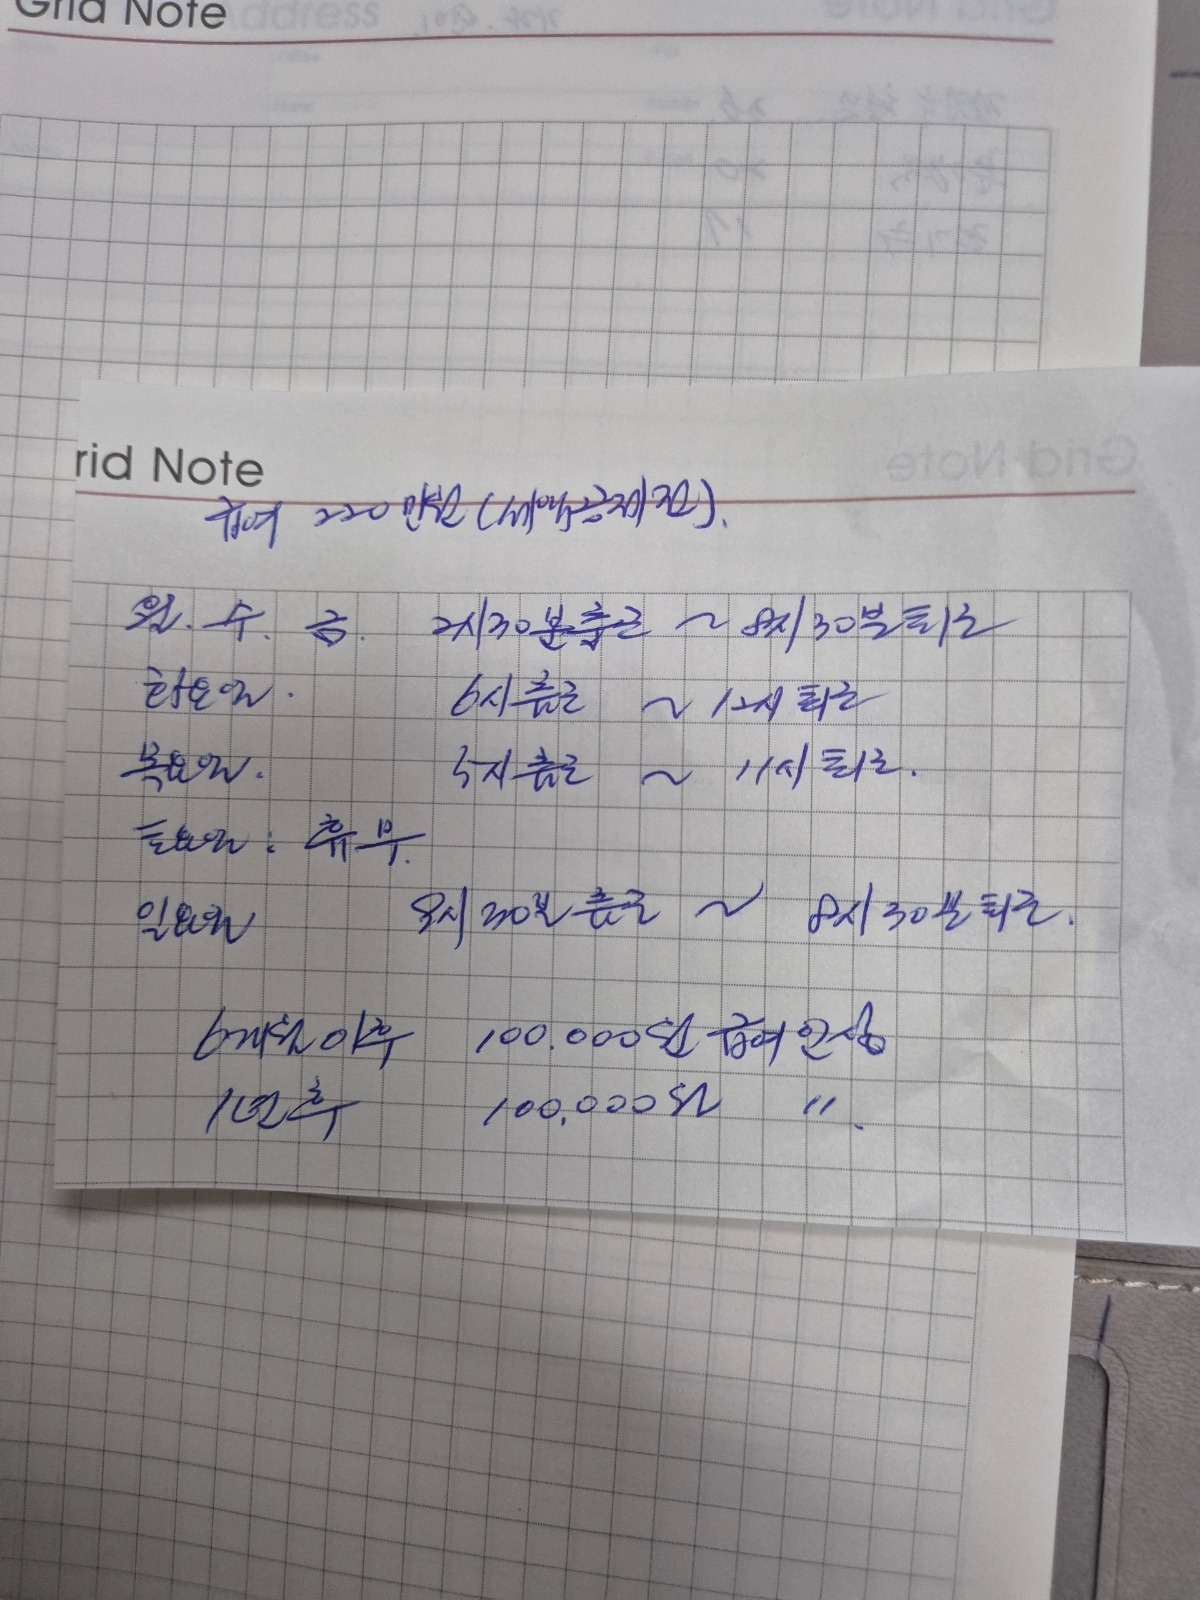 Grid Note
rid Note
급여 220만원 (세액공제전).
월. 수. 금. 2시30분출근 ~ 8시30분퇴근
화요일. 6시출근 ~ 12시퇴근
목요일. 5시출근 ~ 11시퇴근.
토요일: 휴무.
일요일 8시30분출근 ~ 8시30분퇴근.
6개월이후 100.000원 급여인상
1년후 100.000원 〃.